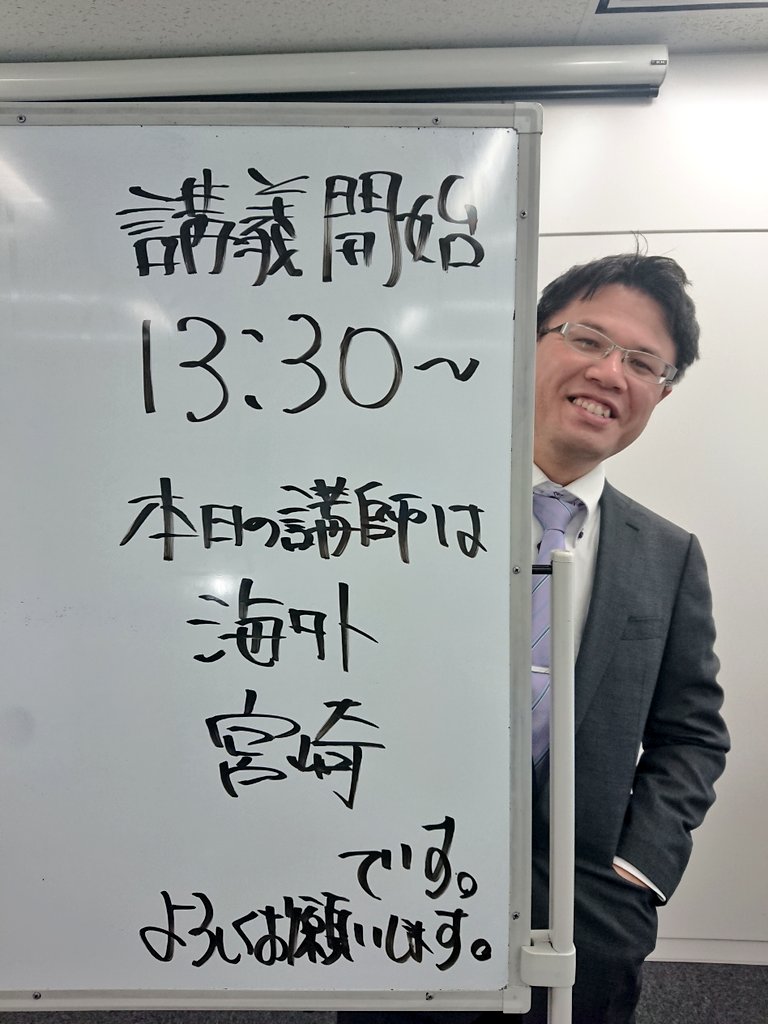 講義開始
13:30～
本日の講師は
海外
宮崎
です。
よろしくお願いします。